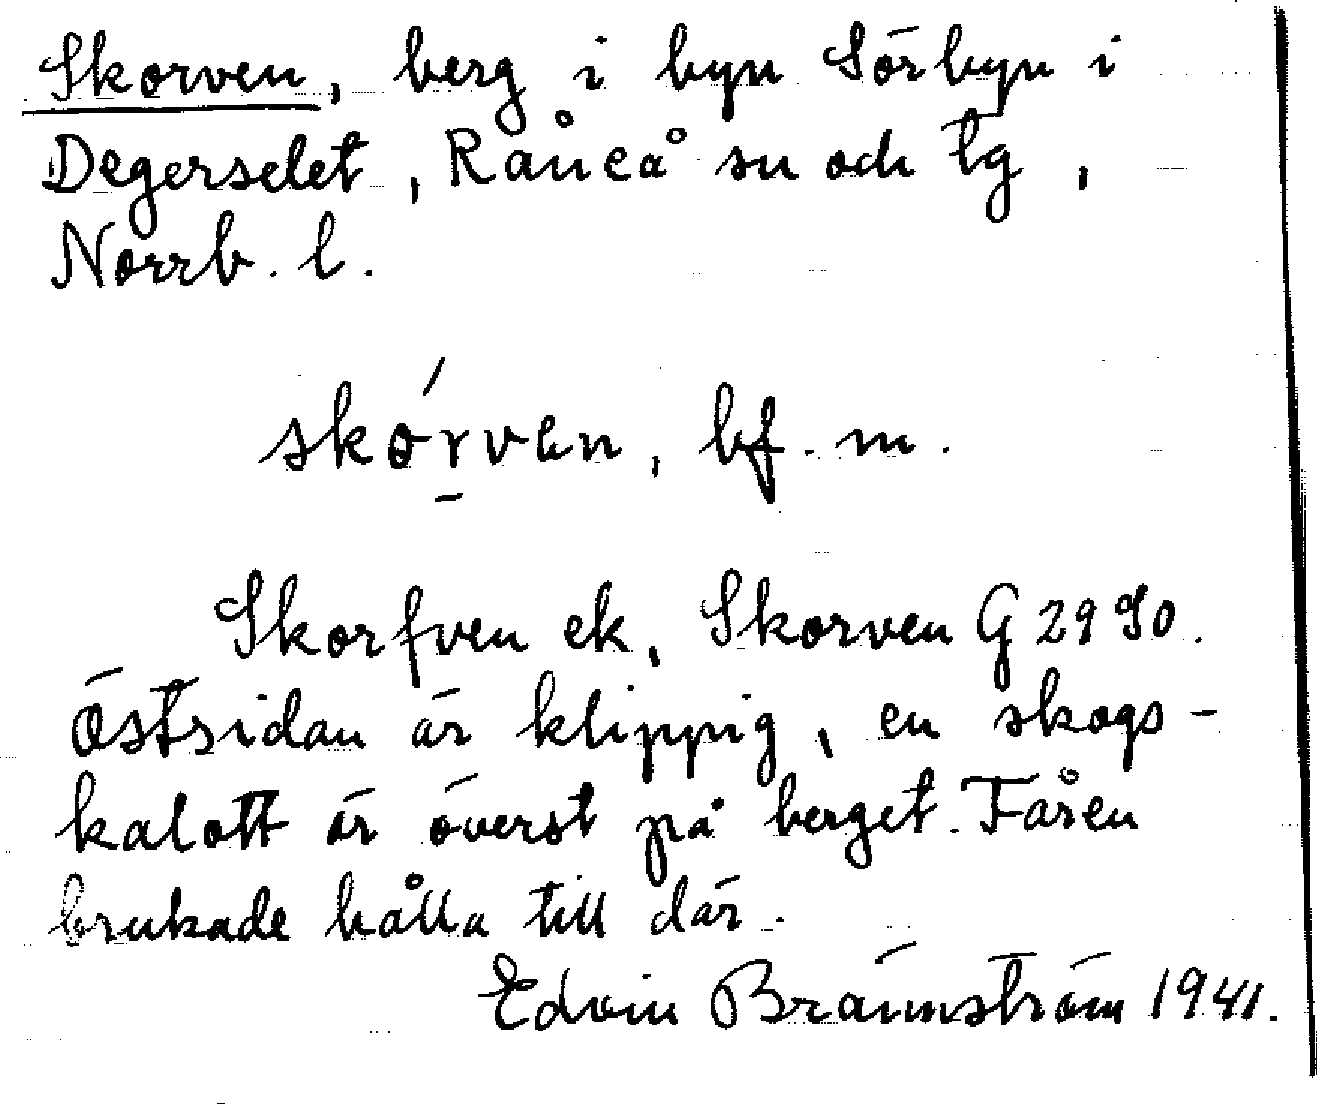 Skorven, berg i byn Sörbyn i
Degerselet, Råneå sn och tg,
Norrb. l.
skórven, bf. m.
Skorfven ek, Skorven G 29 90.
Östsidan är klippig, en skogs-
kalott är överst på berget. Fåren
brukade hålla till där.
Edvin Brännström 1941.